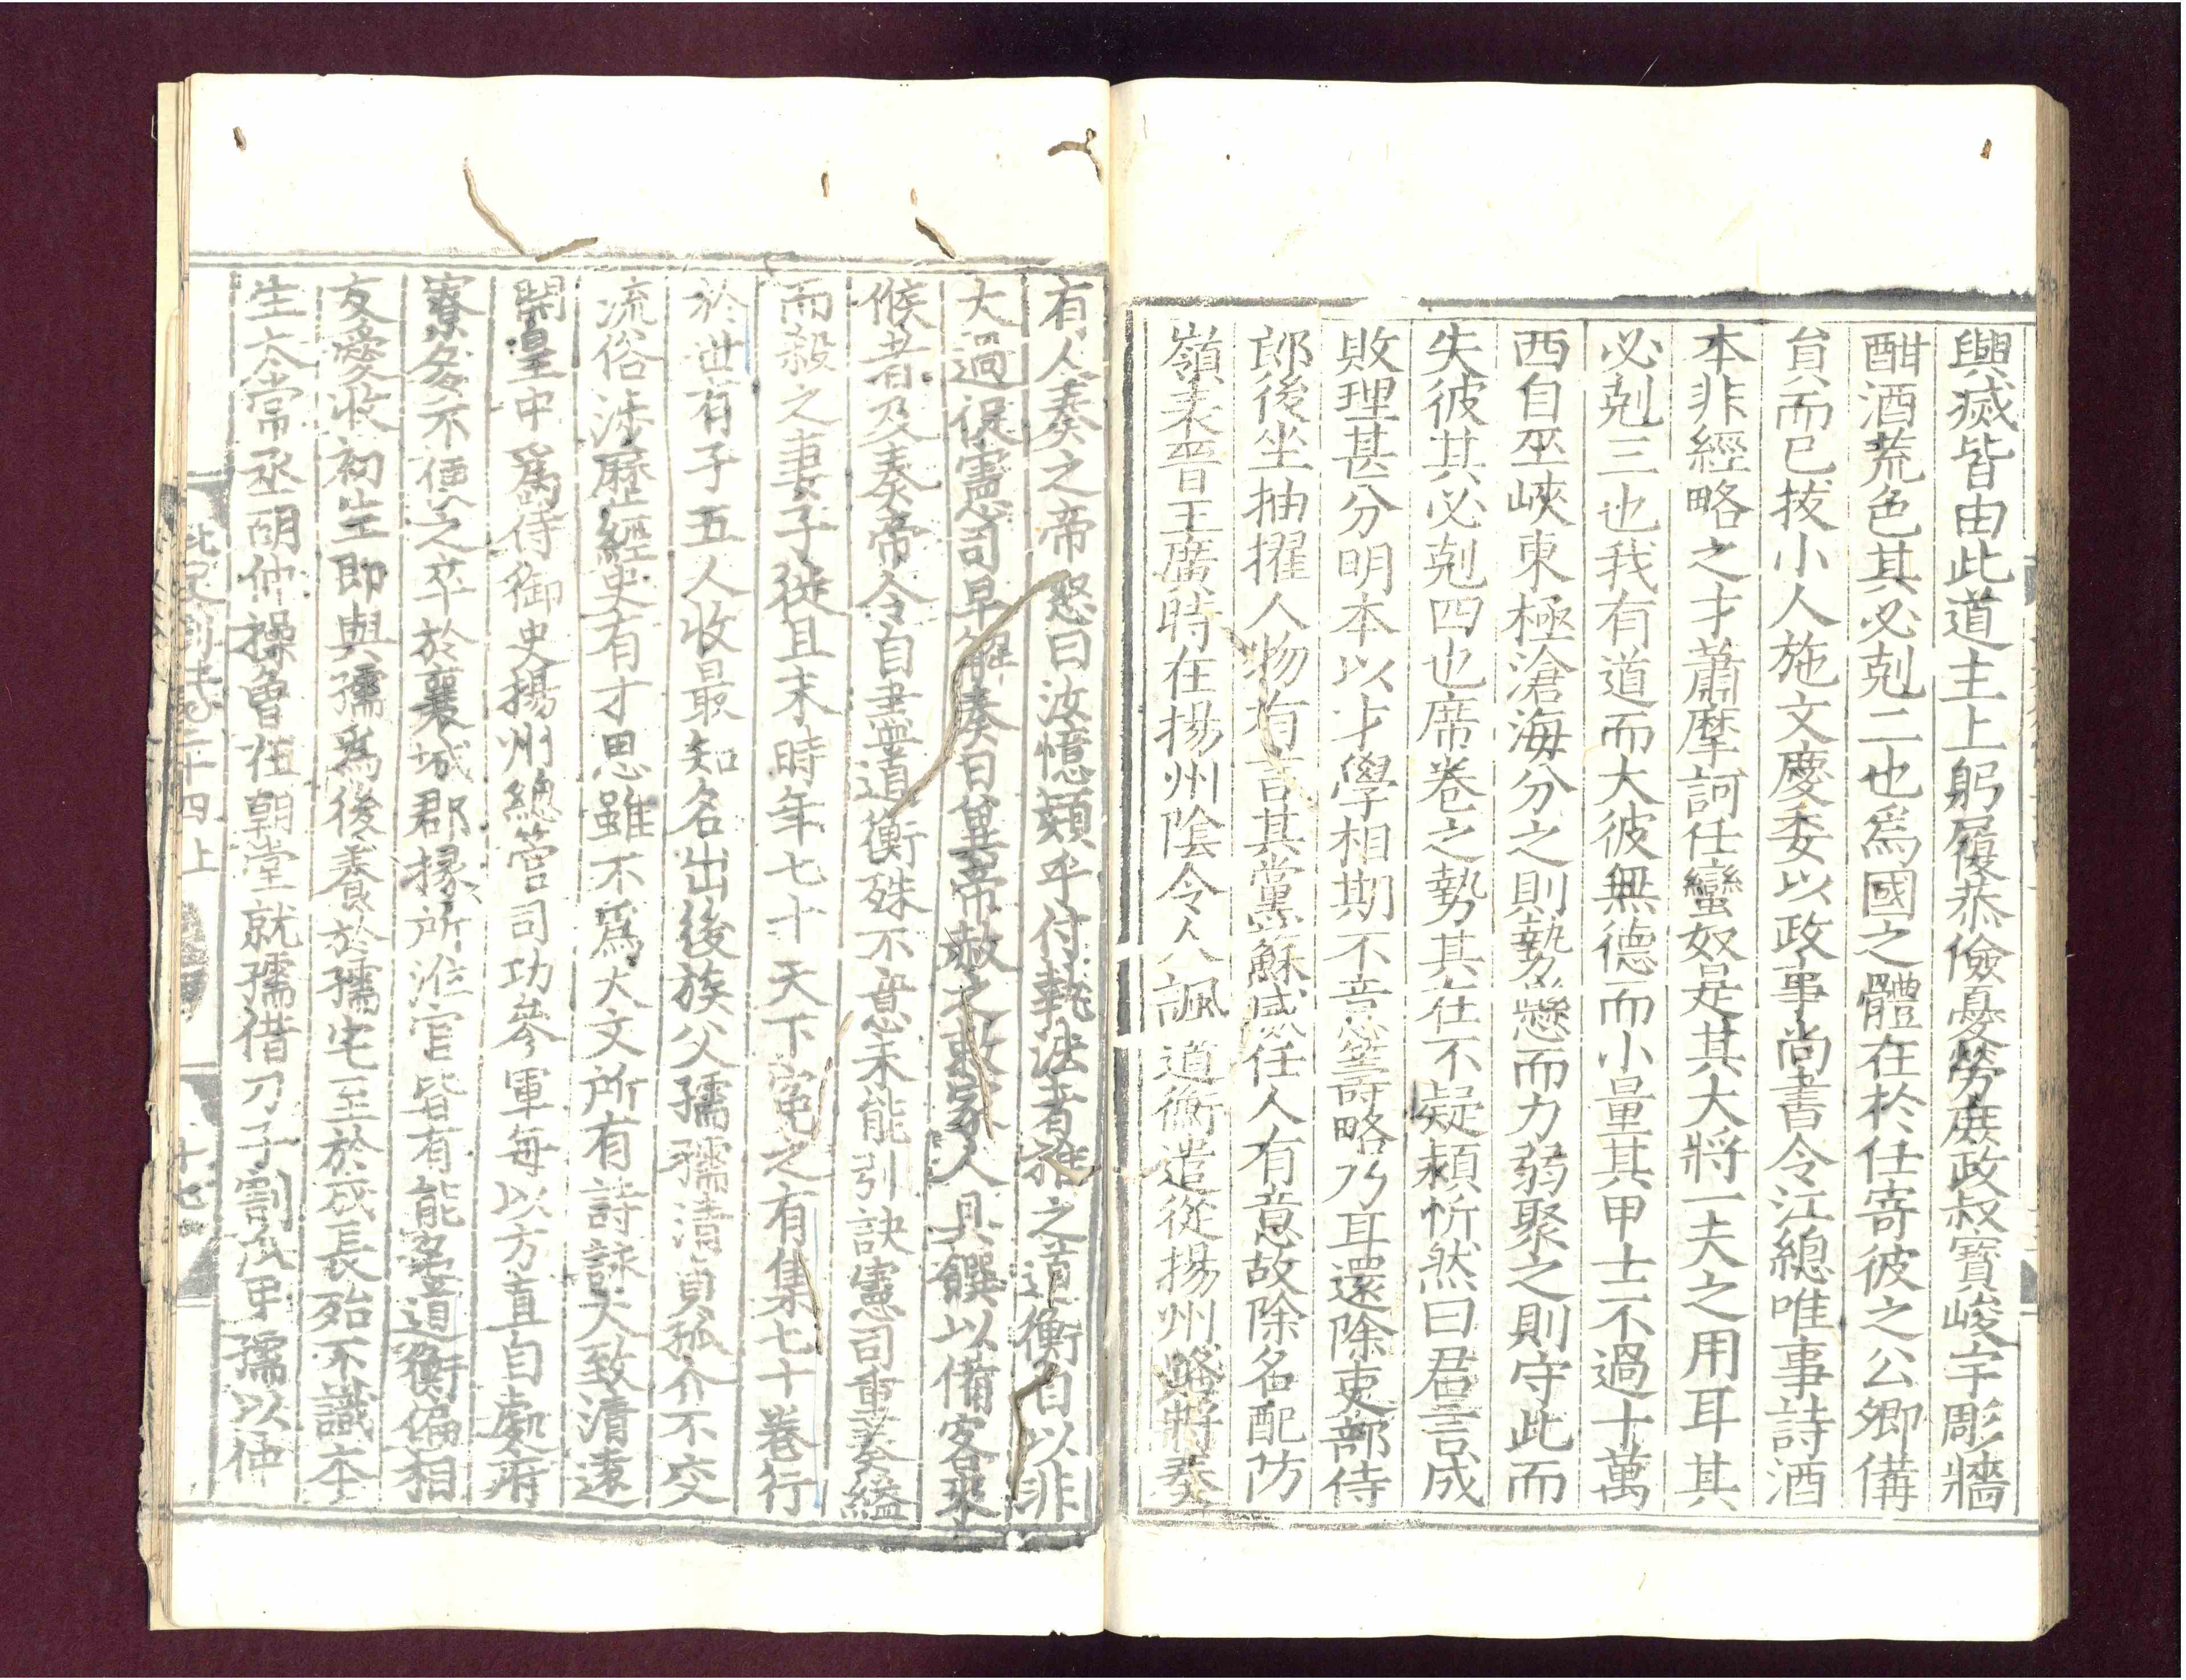 興滅皆由此道主上躬履恭儉憂勞庶政叔寶峻宇彫牆
酣酒荒色其必剋二也爲國之體在於任寄彼之公卿備
貟而已拔小人施文慶委以政事尚書令江總唯事詩酒
本非經略之才蕭摩訶任蠻奴是其大將一夫之用耳其
必剋三也我有道而大彼無德而小量其甲士不過十萬
西自巫峽東極滄海分之則勢懸而力弱聚之則守此而
失彼其必剋四也席卷之勢其在不疑熲忻然曰君言成
敗理甚分明本以才學相期不意籌略乃耳還除吏部侍
郎後坐抽擢人物有言其黨蘇威任人有意故除名配防
嶺表晉王廣時在揚州陰令人諷道衡遣從揚州路將奏
有人奏之帝怒曰汝憶熲乎付執法者推之道衡自以非
大過促憲司早解奏日冀帝赦之敕家人具饌以備客來
候者及奏帝令自盡道衡殊不意未能引訣憲司重奏縊
而殺之妻子徙且末時年七十天下寃之有集七十卷行
於世有子五人收最知名出後族父孺孺清貞孤介不交
流俗涉歷經史有才思雖不爲大文所有詩詠大致清遠
開皇中爲侍御史揚州總管司功參軍每以方直自處府
寮多不便之卒於襄城郡掾所涖官皆有能名道衡偏相
友愛收初生即與孺爲後養於孺宅至於成長殆不識本
生太常丞胡仲操曾在朝堂就孺借刀子割瓜甲孺以仲
四上
十七